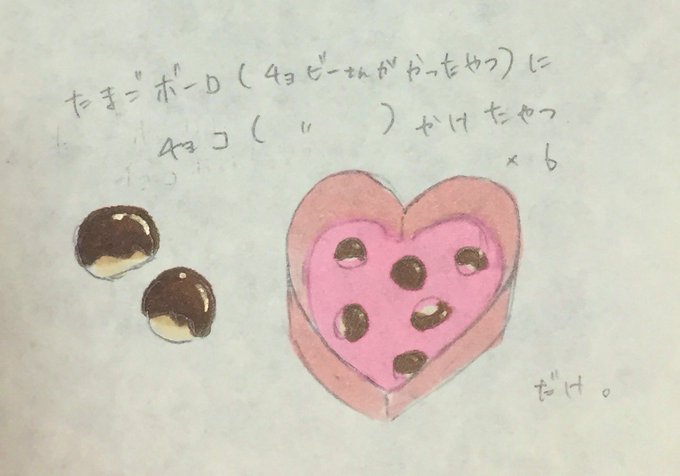 たまごボーロ(チョビーさんがかったやつ)に
チョコ(〃)かけたやつ
×6
だけ。